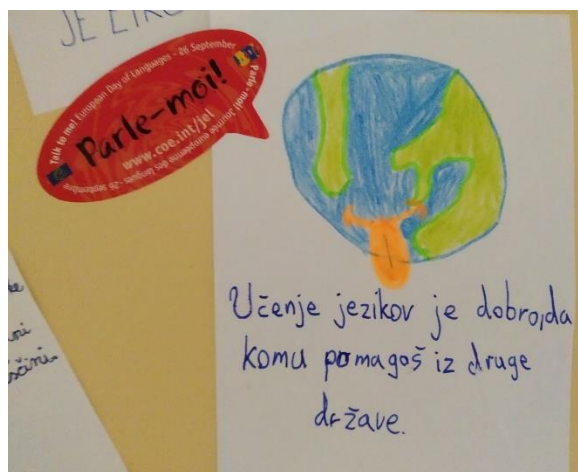 JE
Talk to me! European Day of Languages - 26 September
Parle-moi!
www.coe.int/jel
Parle-moi! Journée européenne des langues - 26 septembre
Učenje jezikov je dobro, da
komu pomagaš iz druge
države.